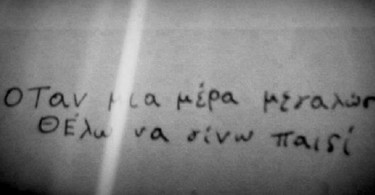 ΟΤαν μια μέρα μεγαλώσ
Θέλω να γίνω παιδί